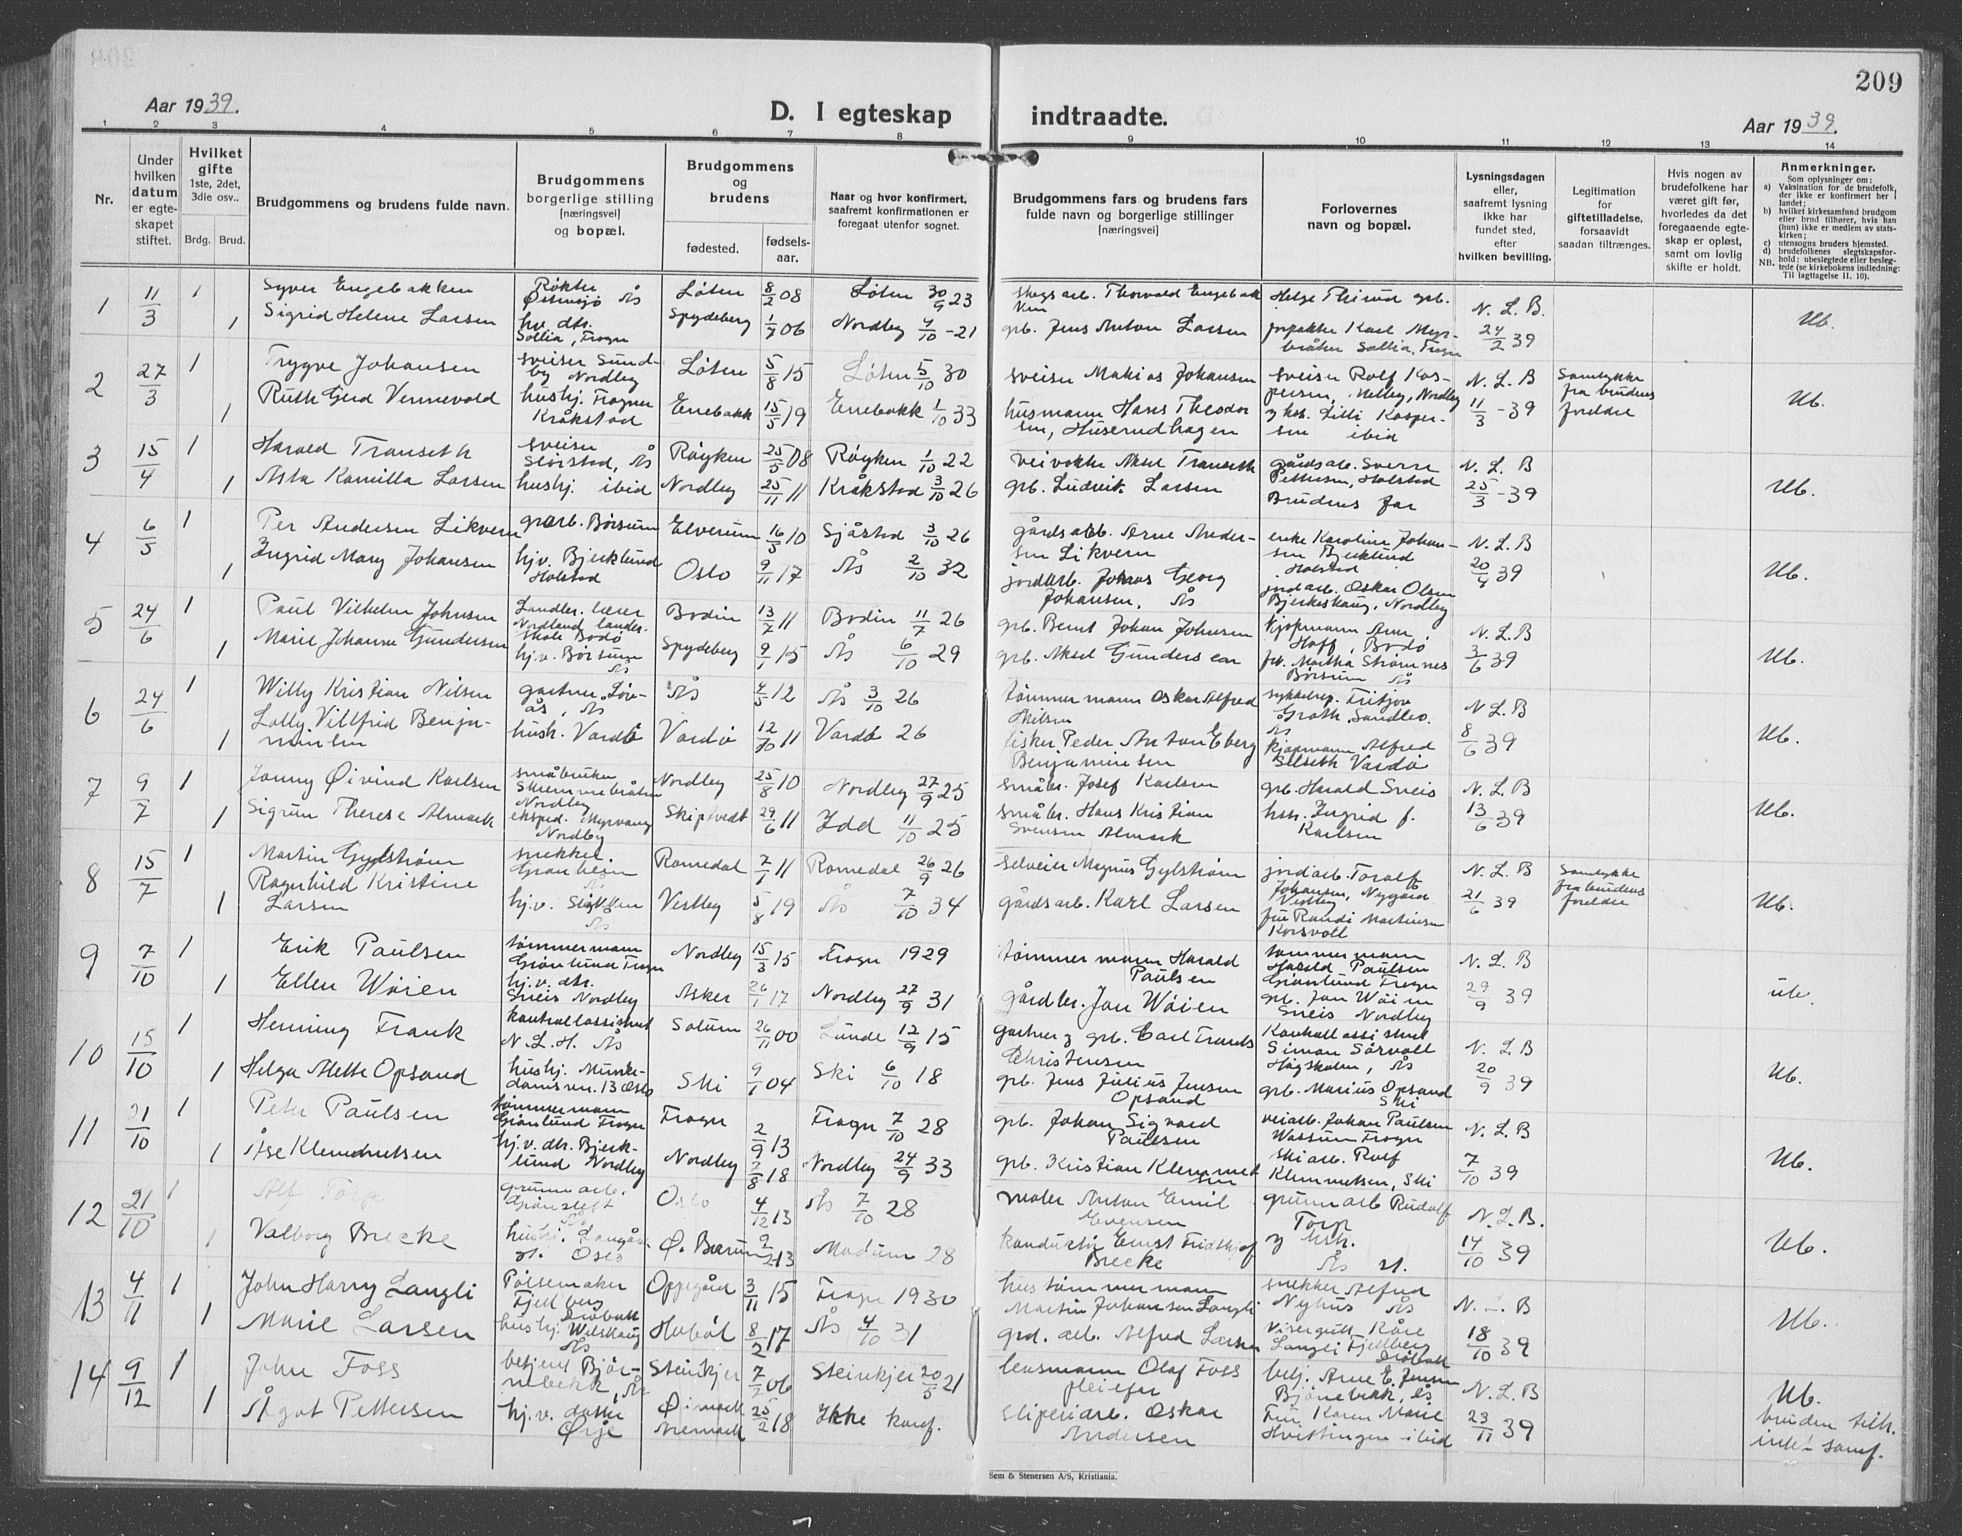 209
Aar 1939.
D. I egteskap indtraadte.
Aar 1939.
1 2 3 4 5 6 7 8 9 10 11 12 13 14
Nr.
Under hvilken datum er egteskapet stiftet.
Hvilket gifte 1ste, 2det, 3die osv..
Brdg. Brud.
Brudgommens og brudens fulde navn.
Brudgommens borgerlige stilling [næringsvei] og bopæl.
Brudgommens og brudens
fødested. fødselsaar.
Naar og hvor konfirmert, saafremt konfirmationen er foregaat utenfor sognet.
Brudgommens fars og brudens fars fulde navn og borgerlige stillinger [næringsvei]
Forlovernes navn og bopæl.
Lysningsdagen eller, saafremt lysning ikke har fundet sted, efter hvilken bevilling.
Legitimation for giftetilladelse, forsaavidt saadan tiltrænges.
Hvis nogen av brudefolkene har været gift før, hvorledes da det foregaaende egteskap er opløst, samt om lovlig skifte er holdt.
Anmerkninger.
Som oplysninger om:
a) Vaksination for de brudefolk, der ikke er konfirmert her i landet;
b) hvilket kirkesamfund brudgom eller brud tilhører, hvis han (hun) ikke er medlem av statskirken;
c) utensogns bruders hjemsted.
d) brudefolkenes slegtskapsforhold: ubeslegtede eller beslegtede (se kirkebokens indledning: NB. Til iagttagelse II, 10).
1 11/3 1 Syver Engebakken Røkter Østensjø Ås Løten 8/2 08 Løten 30/9 23 skogsarb. Thorvald Engebakken Helge Thirud grb. N. L. B.
1 Sigrid Helene Larsen hv. dtr. Sollia, Frogn Spydeberg 1/7 06 Nordby 4/10 -21 grb. Jens Anton Larsen forpakter Karl Myrbråten Sollia, Frogn 24/2 39 Ub.
2 27/3 1 Trygve Johansen sveiser Sundby Nordby Løten 5/8 15 Løten 5/10 30 sveiser Matias Johansen sveiser Rolf Kaspersen, Melby, Nordby N. L. B Samtykke fra brudens foreldre
1 Ruth Gerd Vennevold hushj. Frogner Kråkstad Enebakk 15/5 19 Enebakk 1/10 33 husmann Hans Theodorsen, Huserudhagen og hst. Lilli Kaspersen ibid 11/3 -39 Ub.
3 15/4 1 Harald Transeth sveiser Størstad, Ås Røyken 25/5 08 Røyken 1/10 22 veivokter Aksel Transeth gårdsarb. Sverre Pettersen, Holstad N. L. B
1 Asta Kamilla Larsen hushj. ibid Nordby 25/11 11 Kråkstad 3/10 26 grb. Ludvik Larsen Brudens far 25/3 -39 Ub.
4 6/5 1 Per Andersen Likvern grarb. Børsum Elverum 16/5 10 Sjåstad 3/10 26 gårdsarb. Arne Andersen Likvern enke Karoline Johansen Bjerklund Holstad N. L. B
1 Ingrid Mary Johansen hj.v. Bjerklund Holstad Oslo 9/11 17 Ås 2/10 32 jordarb. Johans Georg Johansen, Ås jordarb. Oskar Olsen Bjerkeskaug, Nordby 20/4 39 Ub.
5 24/6 1 Paul Vilhelm Johnsen Landbr. lærer Nordland landbr. skole Bodø Bodin 13/7 11 Bodin 11/7 26 grb. Bernt Johan Johnsen kjøpmann Arne Hoff, Bodø N. L. B
1 Marie Johanne Gundersen hj.v. Børsum Ås Spydeberg 9/1 15 Ås 6/10 29 grb. Aksel Gundersen frk. Martha Strømnes Børsum Ås 3/6 39 Ub.
6 24/6 1 Willy Kristian Nilsen gartner, Løvås, Ås Ås 4/5 12 Ås 3/10 26 tømmermann Oskar Alfred Nilsen sykkelrep. Fritjov Groth, Sandbo. Ås N. L. B
1 Lolly Villfrid Benjaminsen hush. Vardö Vardö 12/10 11 Vardö 26 fisker Peder Anton Eberg Benjaminsen kjøpmann Alfred Selseth Vardö 8/6 39 Ub.
7 9/7 1 Jonny Øivind Karlsen småbruker Skremmebråten Nordby Nordby 25/8 10 Nordby 27/9 25 småbr. Josef Karlsen grb. Harald Sneis N. L. B
1 Sigrun Therese Almark eksped. Myrvang Nordby Skiptvedt 29/6 11 Idd 11/10 25 småbr. Hans Kristian Svensen Almark hstr. Ingrid f. Karlsen 13/6 39 Ub.
8 15/7 1 Martin Gylstrøm snekker. Grønheim Ås Romedal 7/1 11 Romedal 26/9 26 selveier Magnus Gylstrøm jordarb. Toralf Johansen, Nygård Vestby N. L. B Samtykke fra brudens foreldre
1 Ragnhild Kristine Larsen hj.v. Ås Vestby 5/8 19 Ås 7/10 34 gårdsarb. Karl Larsen fru Randi Martinsen Korsvoll 21/6 39 Ub.
9 7/10 1 Erik Paulsen tømmermann Grønlund Frogn Nordby 15/3 15 Frogn 1929 tømmermann Harald Paulsen tømmermann Harald Paulsen Grønlund Frogn N. L. B
1 Ellen Wøien hj.v. dtr. Sneis Nordby Asker 26/1 17 Nordby 27/9 31 gårdbr. Jan Wøien grb. Jan Wøien Sneis Nordby 29/9 39 ub.
10 15/10 1 Henning Frank kontrollassistent N. L. H. Ås Solum 26/11 00 Lunde 12/9 15 gartner og grb. Carl Frands Christensen Kontrollassistent Simon Sørvoll Høgskolen, Ås N. L. B
1 Helga Mette Opsand hushj. Munkedamsvn. 13 Oslo Ski 9/1 04 Ski 6/10 18 grb. Jens Julius Jensen Opsand grb. Marius Opsand Ski 20/9 39 Ub.
11 21/10 1 Peter Paulsen tømmermann Grønlund Frogn Frogn 2/9 13 Frogn 7/10 28 grb. Johan Sigvard Paulsen veiarb. Johan Paulsen Wassum Frogn N. L. B
1 Åse Klemmetsen hj.v. dtr. Bjerklund Nordby Nordby 2/8 18 Nordby 24/9 33 grb. Kristian Klemmetsen skiarb. Rolf Klemmetsen, Ski 7/10 39 Ub.
12 21/10 1 Alf Torp grunnarb. Grønsleft Ås Oslo 4/12 13 Ås 7/10 28 maler Anton Emil Evensen grunnarb Rudolf Torp N. L. B.
1 Valborg Brecke hushj. Langård Oslo Ø. Bærum 9/2 13 Modum 28 konduktør Ernst Fridthjof Brecke og hstr. Ås st. 14/10 39 Ub.
13 4/11 1 John Harry Langli Pølsemaker Fjellberg Drøbak Oppegård 3/11 15 Frogn 1930 hustømmermann Martin Johansen Langli snekker Alfred Nyhus Ås N. L. B
1 Marie Larsen hushj. Ås Hobøl 8/2 17 Ås 4/10 31 grd. arb. Alfred Larsen visergutt Kåre Langli Fjellberg Drøbak 18/10 39 Ub.
14 9/12 1 John Foss betjent Bjørnebekk, Ås Steinkjer 7/7 06 Steinkjer 20/5 21 lensmann Olaf Foss pleiefar betj. Arne E. Jensen Bjørnebekk, Ås N. L. B Ub.
1 Ågot Pettersen hj.v. datter Ørje Øimark Aremark 25/2 18 Ikke konf. sliperiarb. Oskar Andersen Fru Karen Marie Hvittingen ibid 23/11 39 bruden tilh. intet samf.
Sem & Stenersen A/S, Kristiania.